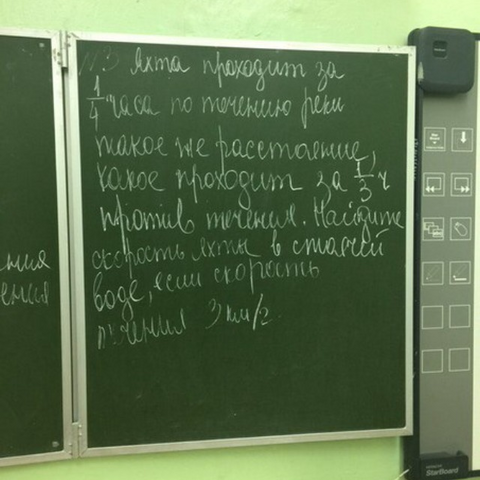 №3 Яхта проходит за
1/4 часа по течению реки
такое же расстояние,
какое проходит за 1/3 ч
против течения. Найдите
скорость яхты в стоячей
воде, если скорость
течения 3 км/ч.
ния
ения
StarBoard